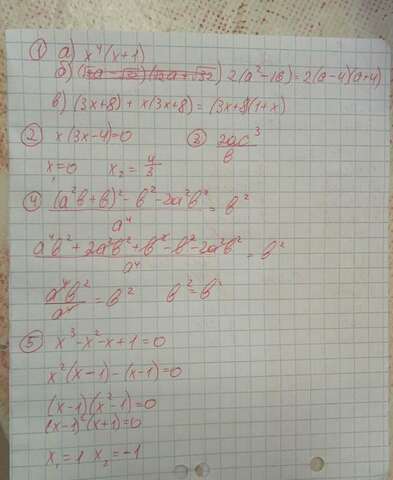 ① а) x⁴(x+1)
б) 2(a²-16)=2(a-4)(a+4)
в) (3x+8)+x(3x+8)=(3x+8)(1+x)
② x(3x-4)=0 ③ 2ac³/b
x₁=0 x₂=4/3
④ ((a²b+b)²-b²-2a²b²)/a⁴=b²
(a⁴b²+2a²b²+b²-b²-2a²b²)/a⁴=b²
a⁴b²/a⁴=b² b²=b²
⑤ x³-x²-x+1=0
x²(x-1)-(x-1)=0
(x-1)(x²-1)=0
(x-1)²(x+1)=0
x₁=1 x₂=-1